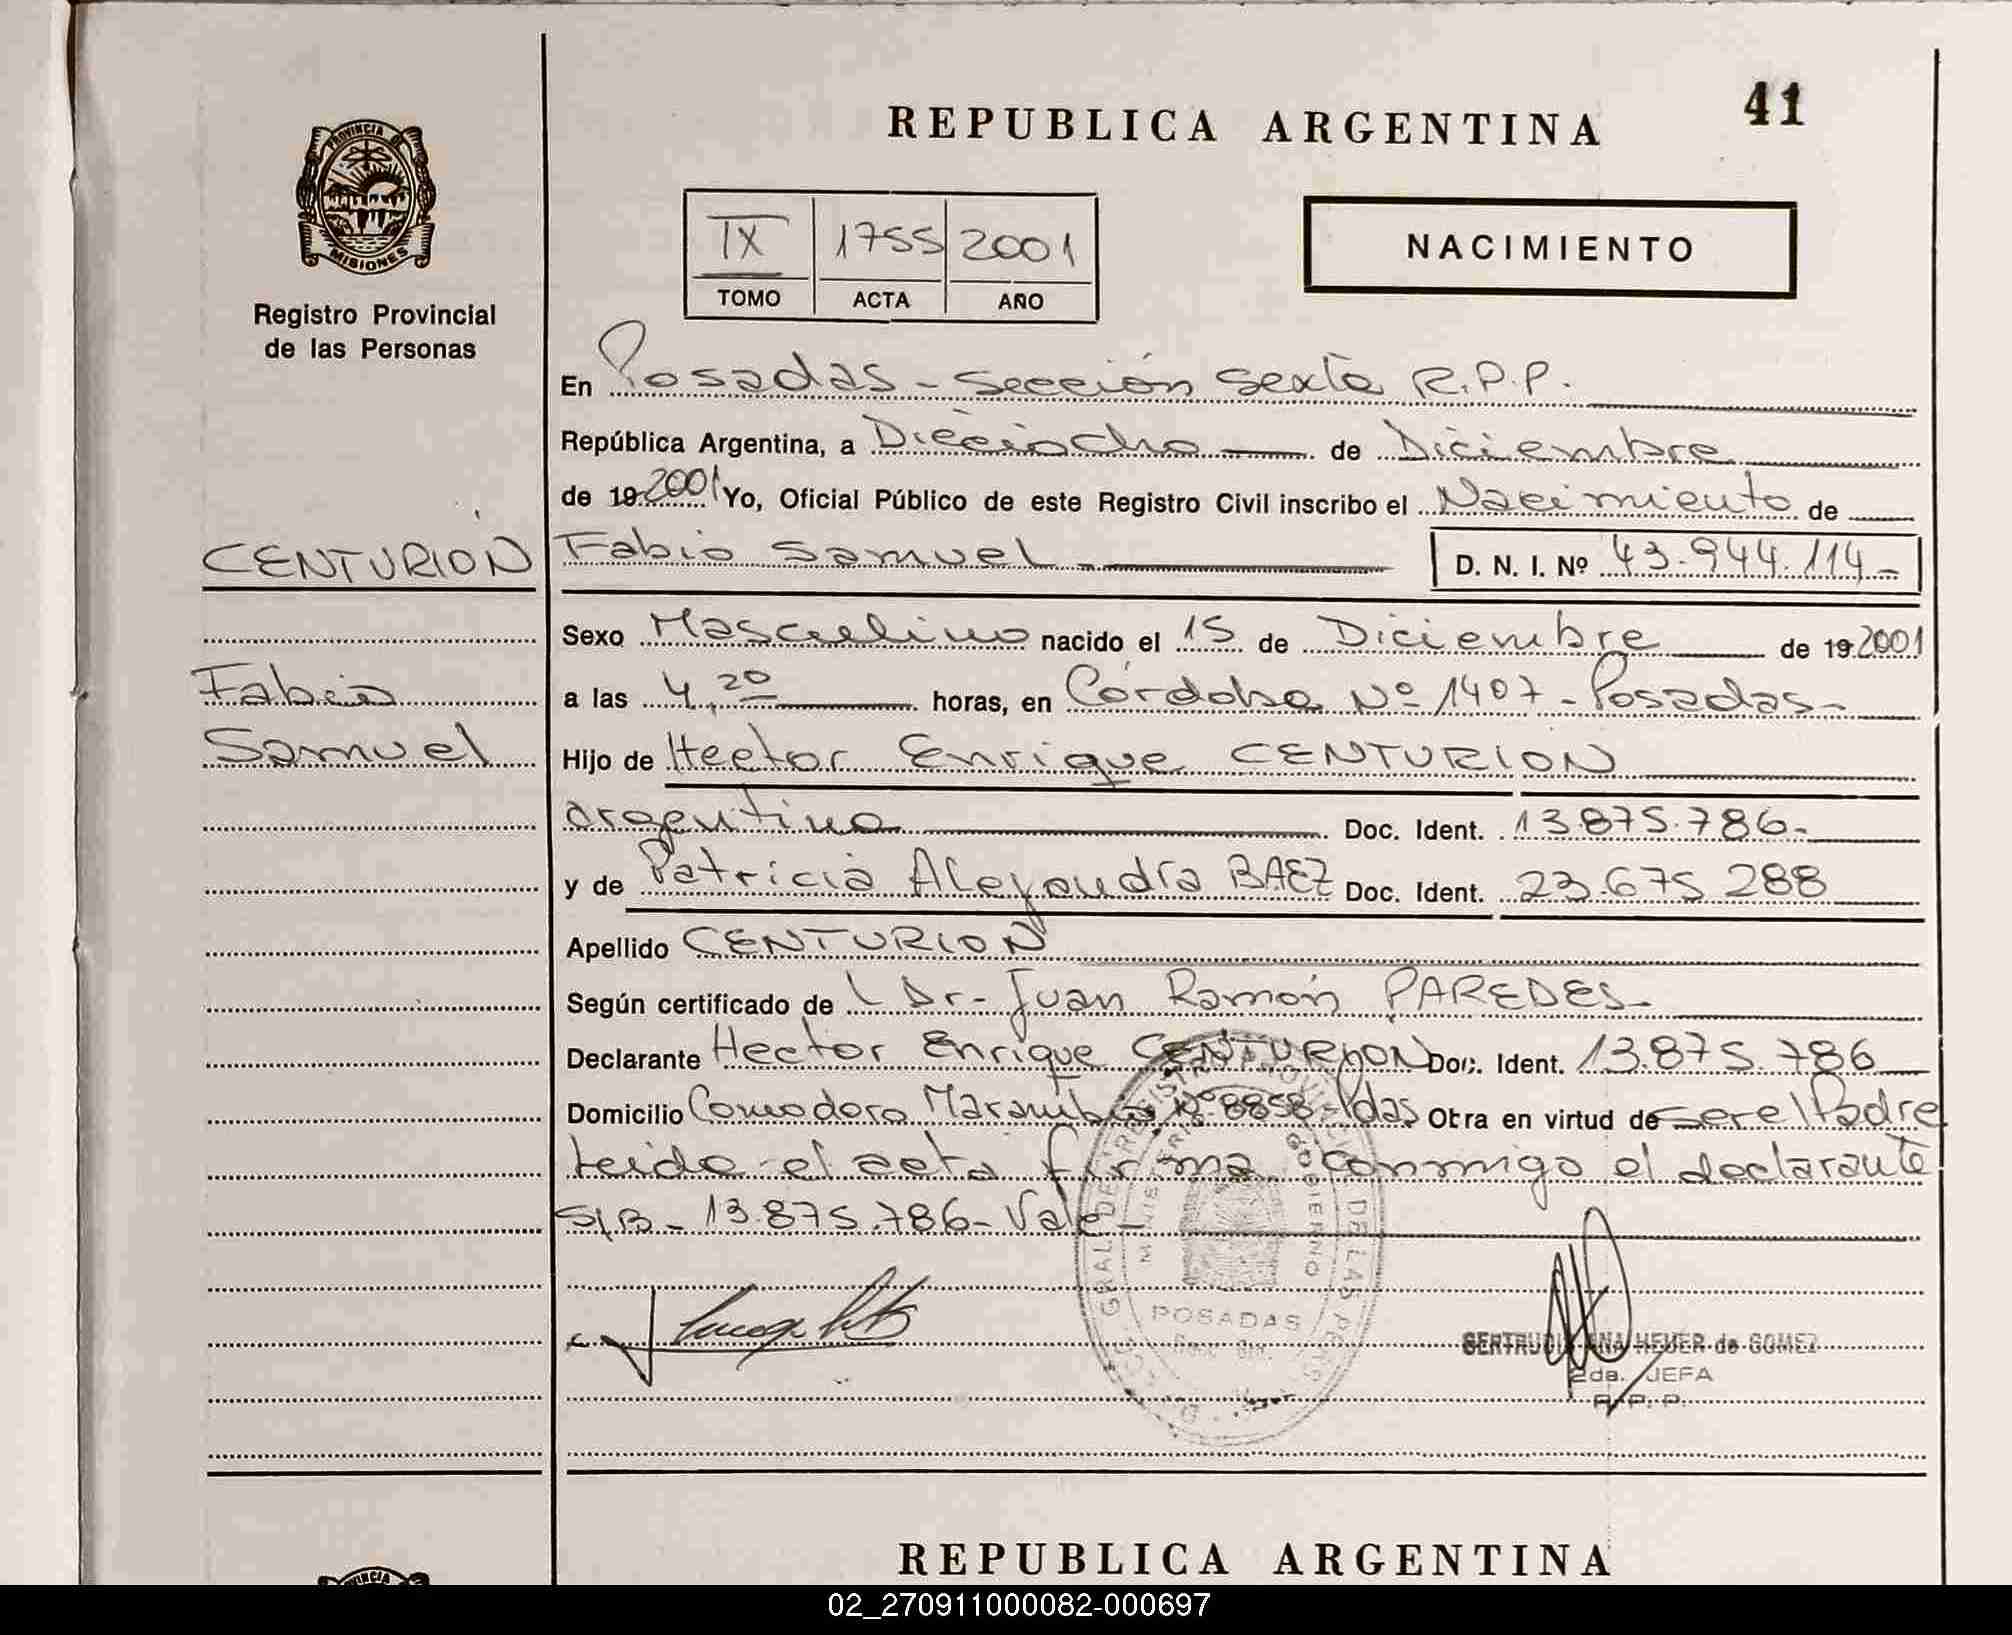 REPUBLICA ARGENTINA
41
PROVINCIA DE
MISIONES
Registro Provincial
de las Personas
IX 1755 2001
TOMO ACTA AÑO
NACIMIENTO
En Posadas - Sección Sexta R.P.P.
República Argentina, a Dieciocho de Diciembre
de 19 2001 Yo, Oficial Público de este Registro Civil inscribo el Nacimiento de
CENTURIÓN
Fabio Samuel D. N. I. Nº 43.944.114-
Sexo Masculino nacido el 15 de Diciembre de 19 2001
Fabio
a las 4,20 horas, en Córdoba Nº 1407 - Posadas-
Samuel
Hijo de Hector Enrique CENTURION
argentino Doc. Ident. 13.875.786-
y de Patricia Alejandra BAEZ Doc. Ident. 23.675.288
Apellido CENTURION
Según certificado de Dr- Juan Ramón PAREDES-
Declarante Hector Enrique CENTURION Doc. Ident. 13.875.786
Domicilio Comodoro Marambio Nº 8858-Pdas Obra en virtud de ser el Padre
leida el acta firma conmigo el declarante
S/B- 13.875.786- Vale-
POSADAS
GERTRUDIS ANA HEUER de GOMEZ
2da. JEFA
R.P.P.
REPUBLICA ARGENTINA
02_270911000082-000697